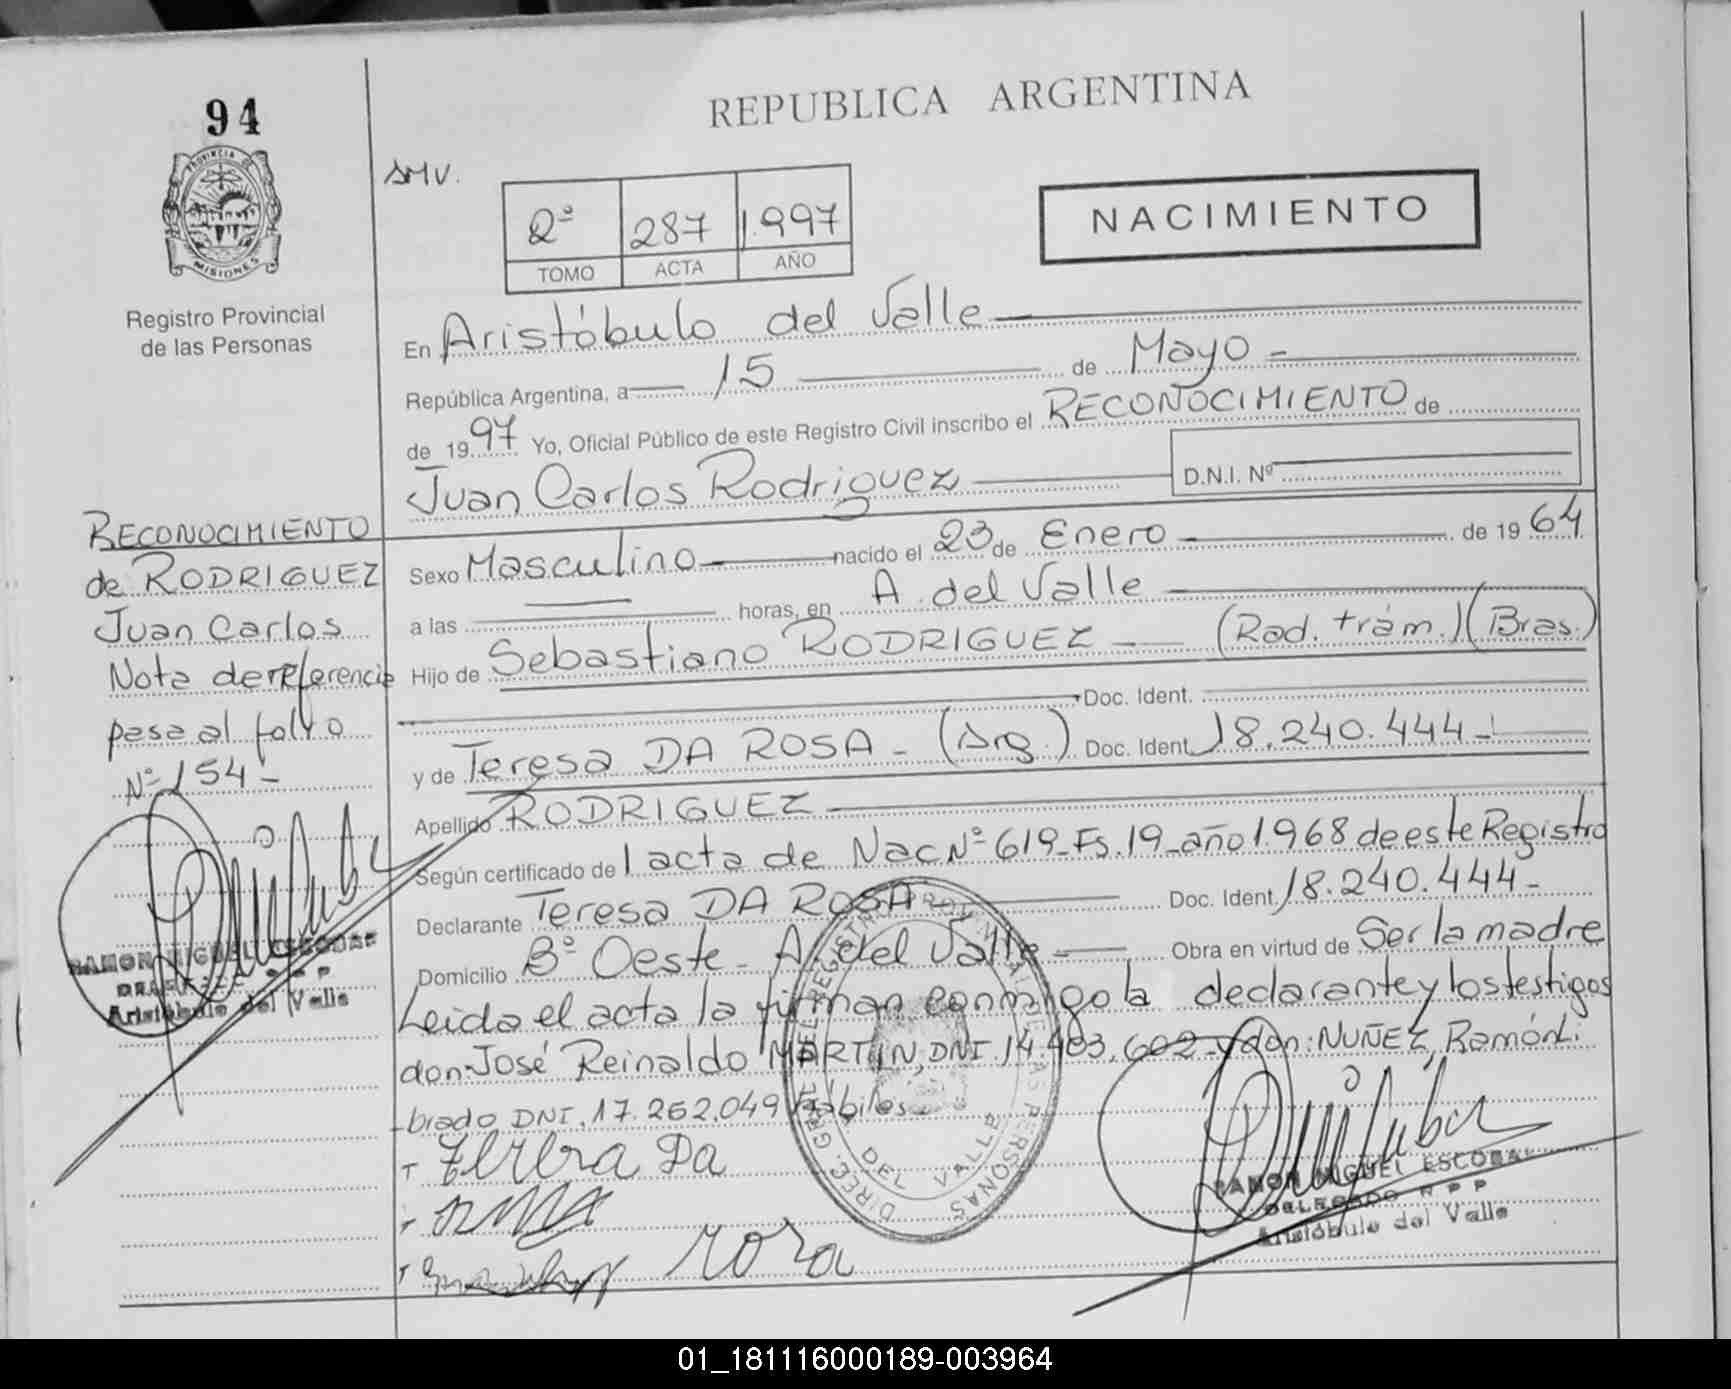 94
PROVINCIA DE
MISIONES
Registro Provincial
de las Personas
REPUBLICA ARGENTINA
AMV.
2º 287 1.997
TOMO ACTA AÑO
NACIMIENTO
En Aristóbulo del Valle
República Argentina, a 15 de Mayo
de 1997 Yo, Oficial Público de este Registro Civil inscribo el RECONOCIMIENTO de
Juan Carlos Rodriguez D.N.I. Nº
Sexo Masculino nacido el 23 de Enero de 1964
a las horas, en A. del Valle
Hijo de Sebastiano RODRIGUEZ (Rad. trám.) (Bras.)
Doc. Ident.
y de Teresa DA ROSA - (Arg.) Doc. Ident. 18.240.444-
Apellido RODRIGUEZ
Según certificado de 1 acta de Nac Nº 619-Fs.19-año 1.968 de este Registro
Declarante Teresa DA ROSA Doc. Ident. 18.240.444-
Domicilio Bº Oeste - A. del Valle Obra en virtud de Ser la madre
Leida el acta la firman conmigo la declarante y los testigos
don: José Reinaldo MARTIN, DNI. 14.403.602 y don: NUÑEZ, Ramón Li
brado DNI. 17.262.049 Hábiles
Teresa Da
Rosa
RECONOCIMIENTO
de RODRIGUEZ
Juan Carlos
Nota de referencia
pasa al folio
Nº 154-
RAMON MIGUEL ESCOBAR
Aristóbulo del Valle
DIREC. GRAL. DEL REGISTRO PROVINCIAL DE LAS PERSONAS
DEL VALLE
RAMON MIGUEL ESCOBAR
DELEGADO R P P
Aristóbulo del Valle
01_181116000189-003964